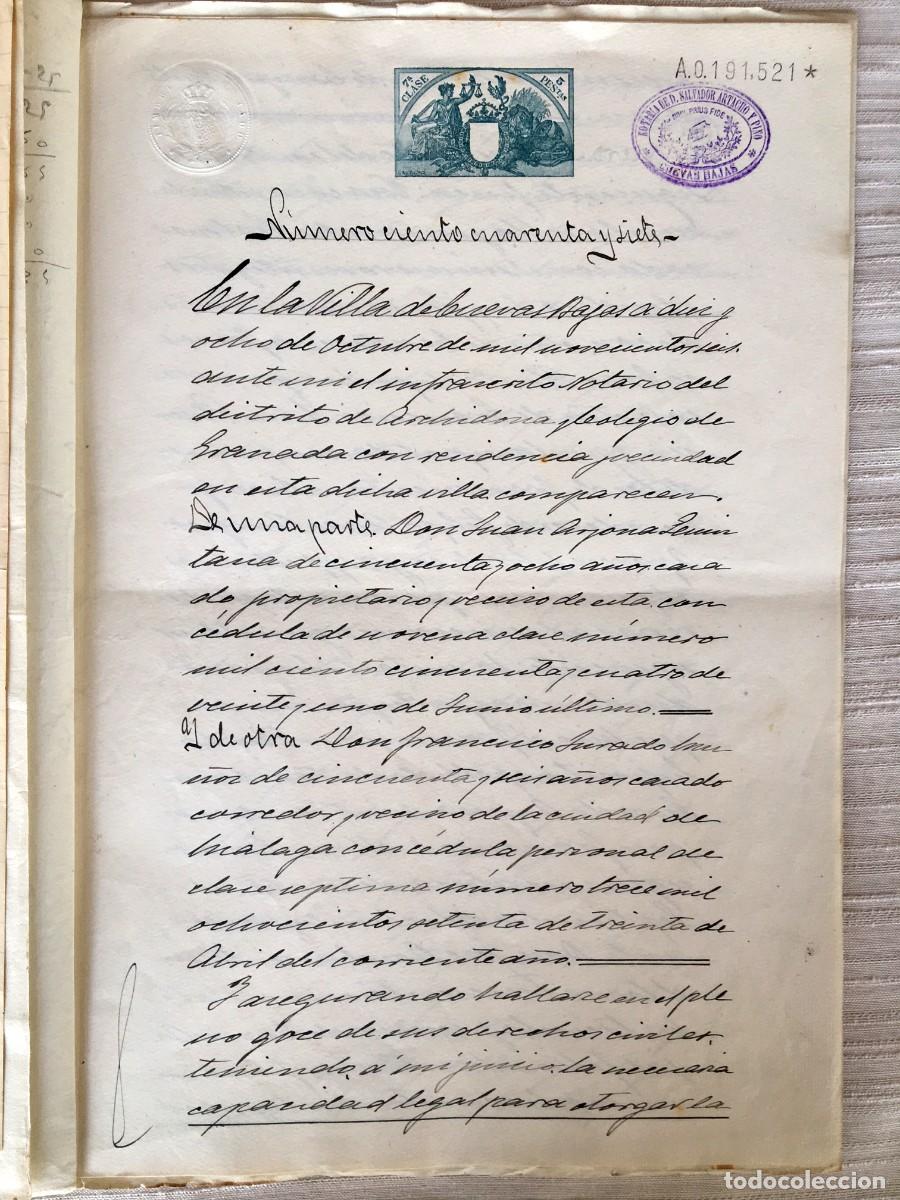 7ª CLASE 5 PESETAS
A.0.191,521 *
NOTARIA DE D. SALVADOR ARTACHO Y PINO
NIHIL PRIUS FIDE
CUEVAS BAJAS
Número ciento cuarenta y siete
En la Villa de Cuevas Bajas a diez y
ocho de Octubre de mil novecientos seis.
ante mi el infrascrito Notario del
distrito de Archidona y Colegio de
Granada con residencia y vecindad
en esta dicha villa comparecen.
De una parte. Don Juan Arjona Quin
tana de cincuenta y ocho años, casa
do, propietario y vecino de esta. con
cédula de novena clase número
mil ciento cincuenta y cuatro de
veinte y uno de Junio último.
Y de otra Don Francisco Jurado Mu
ñoz de cincuenta y seis años casado
corredor y vecino de la ciudad de
Málaga con cédula personal de
clase septima número trece mil
ochocientos setenta de treinta de
Abril del corriente año.
Y asegurando hallarse en el ple
no goce de sus derechos civiles,
teniendo, á mi juicio, la necesaria
capacidad legal para otorgar la
25
25
todocoleccion